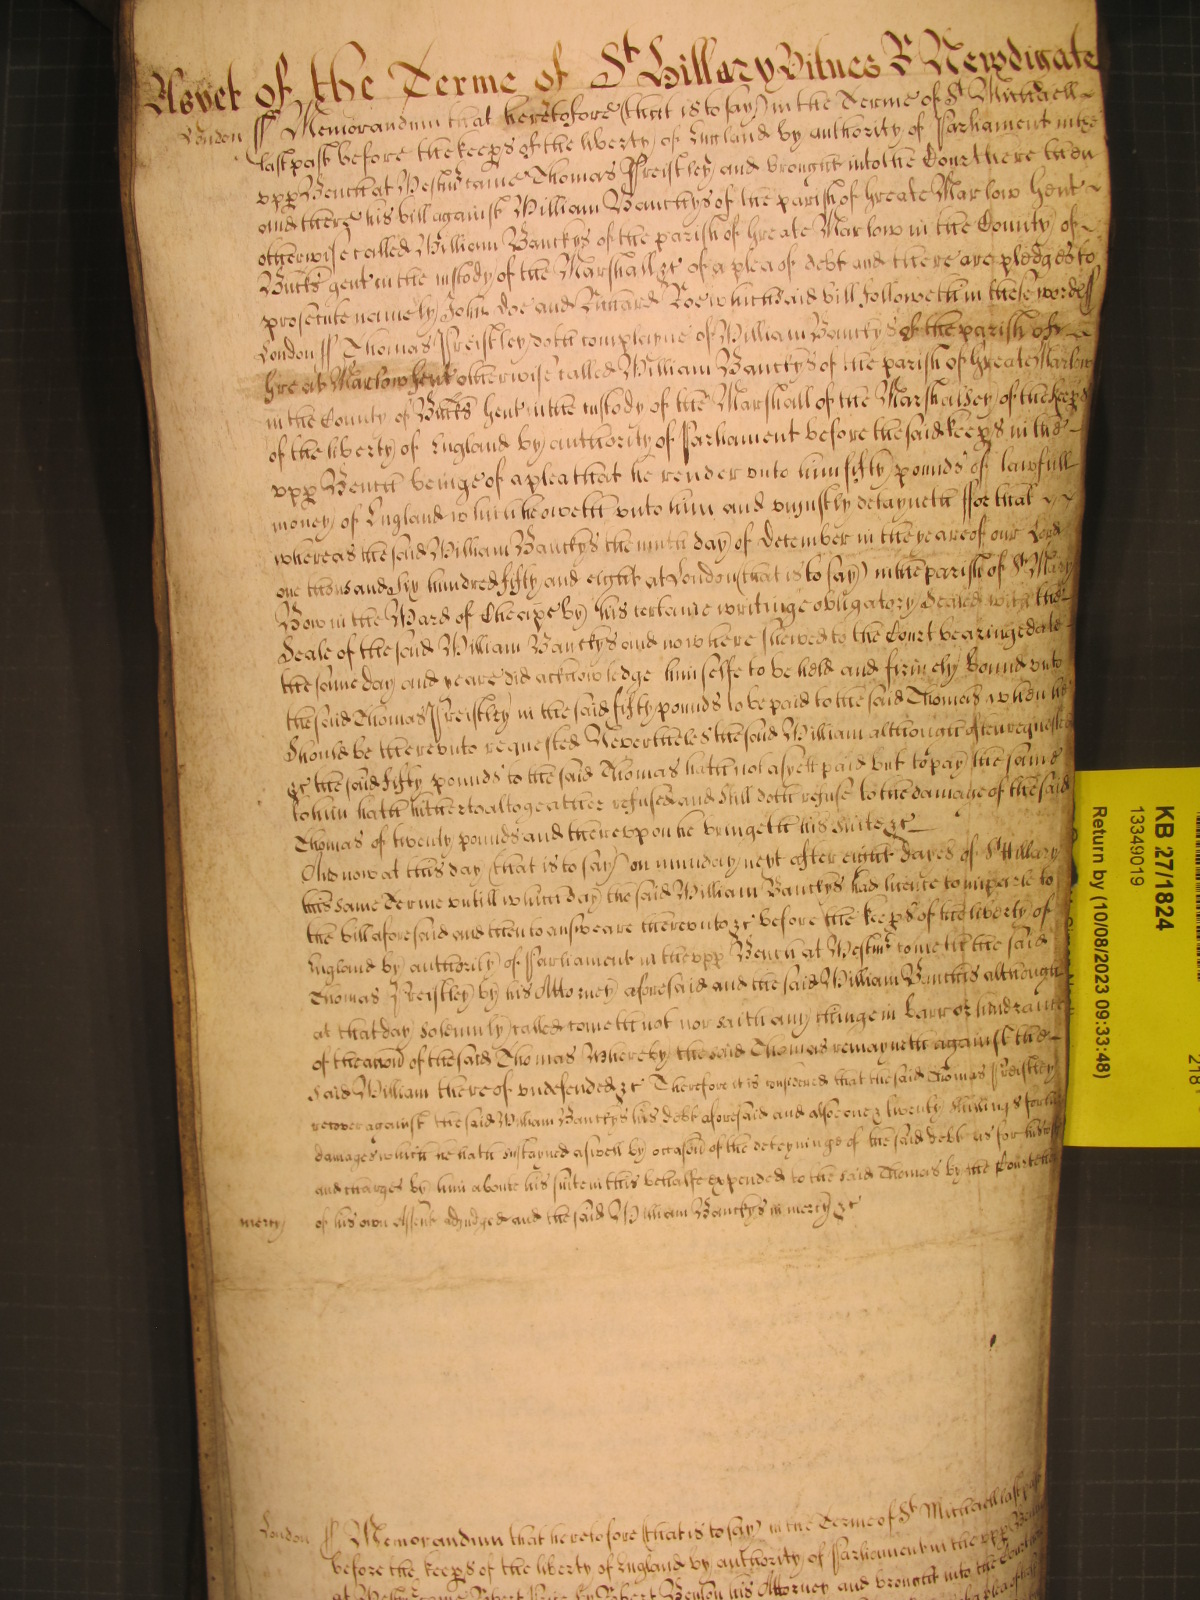 As yet of the Terme of St Hillary Witnes R Newdigate
London ss Memorandum that heretofore (that is to say) in the Terme of St Michaell
last past before the keeps of the liberty of England by authority of Parliament in the
upp Bench at Westmr came Thomas Preistley and brought into the Court here then
and there his bill against William Banckys of the parish of Greate Marlow Gent
otherwise called William Banckys of the parish of Greate Marlow in the County of
Bucks gent in the custody of the Marshall &c of a plea of debt and there are pledges to
prosecute namely John Doe and Richard Roe which said bill followeth in these words ss
London ss Thomas Preistley doth complayne of William Banckys of the parish of
Greate Marlow Gent otherwise called William Banckys of the parish of Greate Marlow
in the County of Bucks Gent in the custody of the Marshall of the Marshalsey of the keeps
of the liberty of England by authority of Parliament before the said keeps in the
upp Bench beinge of a plea that he render unto him fifty pounds of lawfull
money of England which he oweth unto him and uniustly detayneth For that
whereas the said William Banckys the ninth day of December in the yeare of our Lord
one thousand six hundred fifty and eight at London (that is to say) in the parish of St Mary
Bow in the Ward of Cheape by his certaine writinge obligatory Sealed with the
Seale of the said William Banckys and now here shewed to the Court bearinge date
the same day and yeare did acknowledge himselfe to be held and firmely bound unto
the said Thomas Preistley in the said fifty pounds to be paid to the said Thomas when he
should be thereunto requested Neverthelesse the said William although often requested
&c the said fifty pounds to the said Thomas hath not as yett paid but to pay the same
to him hath hitherto altogeather refused and still doth refuse to the damage of the said
Thomas of twenty pounds and thereupon he bringeth his suite &c
And now at this day (that is to say) on munday next after eight dayes of St Hillary
this same Terme untill which day the said William Banckys had licence to imparle to
the bill aforesaid and then to answeare thereunto &c before the keeps of the liberty of
England by authority of Parliament in the upp Bench at Westmr cometh the said
Thomas Preistley by his Attorney aforesaid and the said William Banckis although
at that day solemnly called cometh not nor saith any thinge in barr or hindrance
of the accion of the said Thomas Whereby the said Thomas remayneth against the
said William thereof undefended &c Therefore it is considered that the said Thomas Preistley
recover against the said William Banckys his debt aforesaid and alsoe one & twenty shillings for his
damages which he hath sustayned aswell by occasion of the deteyninge of the said debt as for his costs
and charges by him aboute his suite in this behalfe expended to the said Thomas by the Court here
mercy of his own Assent adiudged and the said William Banckys in mercy &c
London ss Memorandum that heretofore (that is to say) in the Terme of St Michaell last past
before the keeps of the liberty of England by authority of Parliament in the upp Bench
at Westmr came Robert by Robert Benson his Attorney and brought into the Court
KB 27/1824
13349019
Return by (10/08/2023 09:33:48)
218